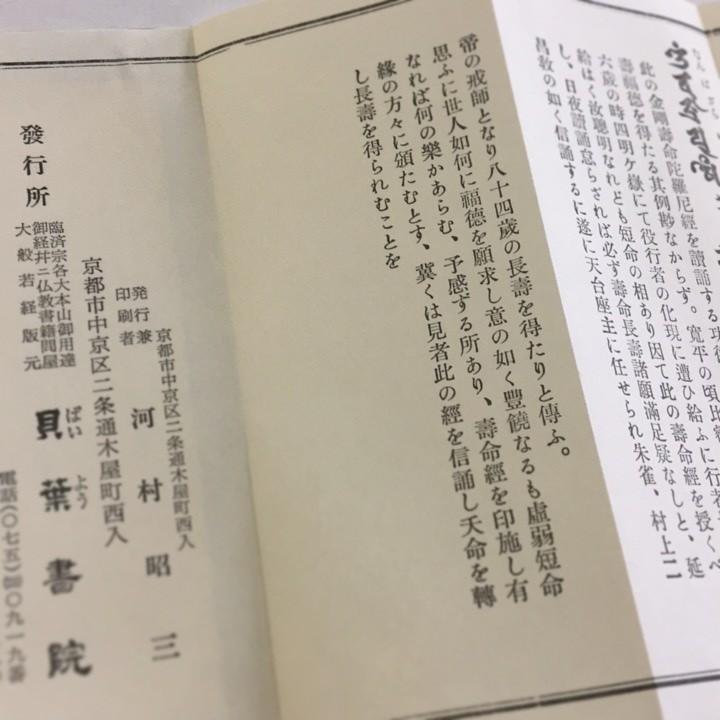 此の金剛壽命陀羅尼經を讀誦する功
壽福德を得たる其例尠なからず。寬平の頃
六歲の時四明ケ嶽にて役行者の化現に遭ひ給ふに行者
給はく汝聰明なれとも短命の相あり因て此の壽命經を授くべ
し、日夜讀誦怠らざれば必ず壽命長壽諸願滿足疑なしと、延
昌敎の如く信誦するに遂に天台座主に任せられ朱雀、村上二
帝の戒師となり八十四歲の長壽を得たりと傳ふ。
思ふに世人如何に福德を願求し意の如く豐饒なるも虛弱短命
なれば何の樂かあらむ、予感ずる所あり、壽命經を印施し有
緣の方々に頒たむとす、冀くは見者此の經を信誦し天命を轉
し長壽を得られむことを
京都市中京区二条通木屋町西入
発行兼印刷者 河村昭三
京都市中京区二条通木屋町西入
發行所
臨済宗各大本山御用達
御経并ニ仏教書籍問屋
大般若経版元
貝葉書院
ばいよう
電話(〇七五)㉛〇九一九番